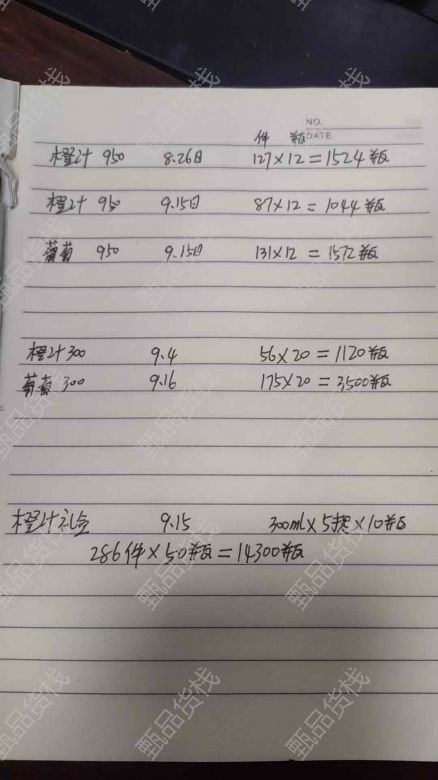 NO.
DATE
件 瓶
橙汁 950 8.26日 127×12=1524瓶
橙汁 950 9.15日 87×12=1044瓶
葡萄 950 9.15日 131×12=1572瓶
橙汁300 9.4 56×20=1120瓶
葡萄300 9.16 175×20=3500瓶
橙汁礼盒 9.15 300ml×5提×10瓶
286件×50瓶=14300瓶
甄品货栈